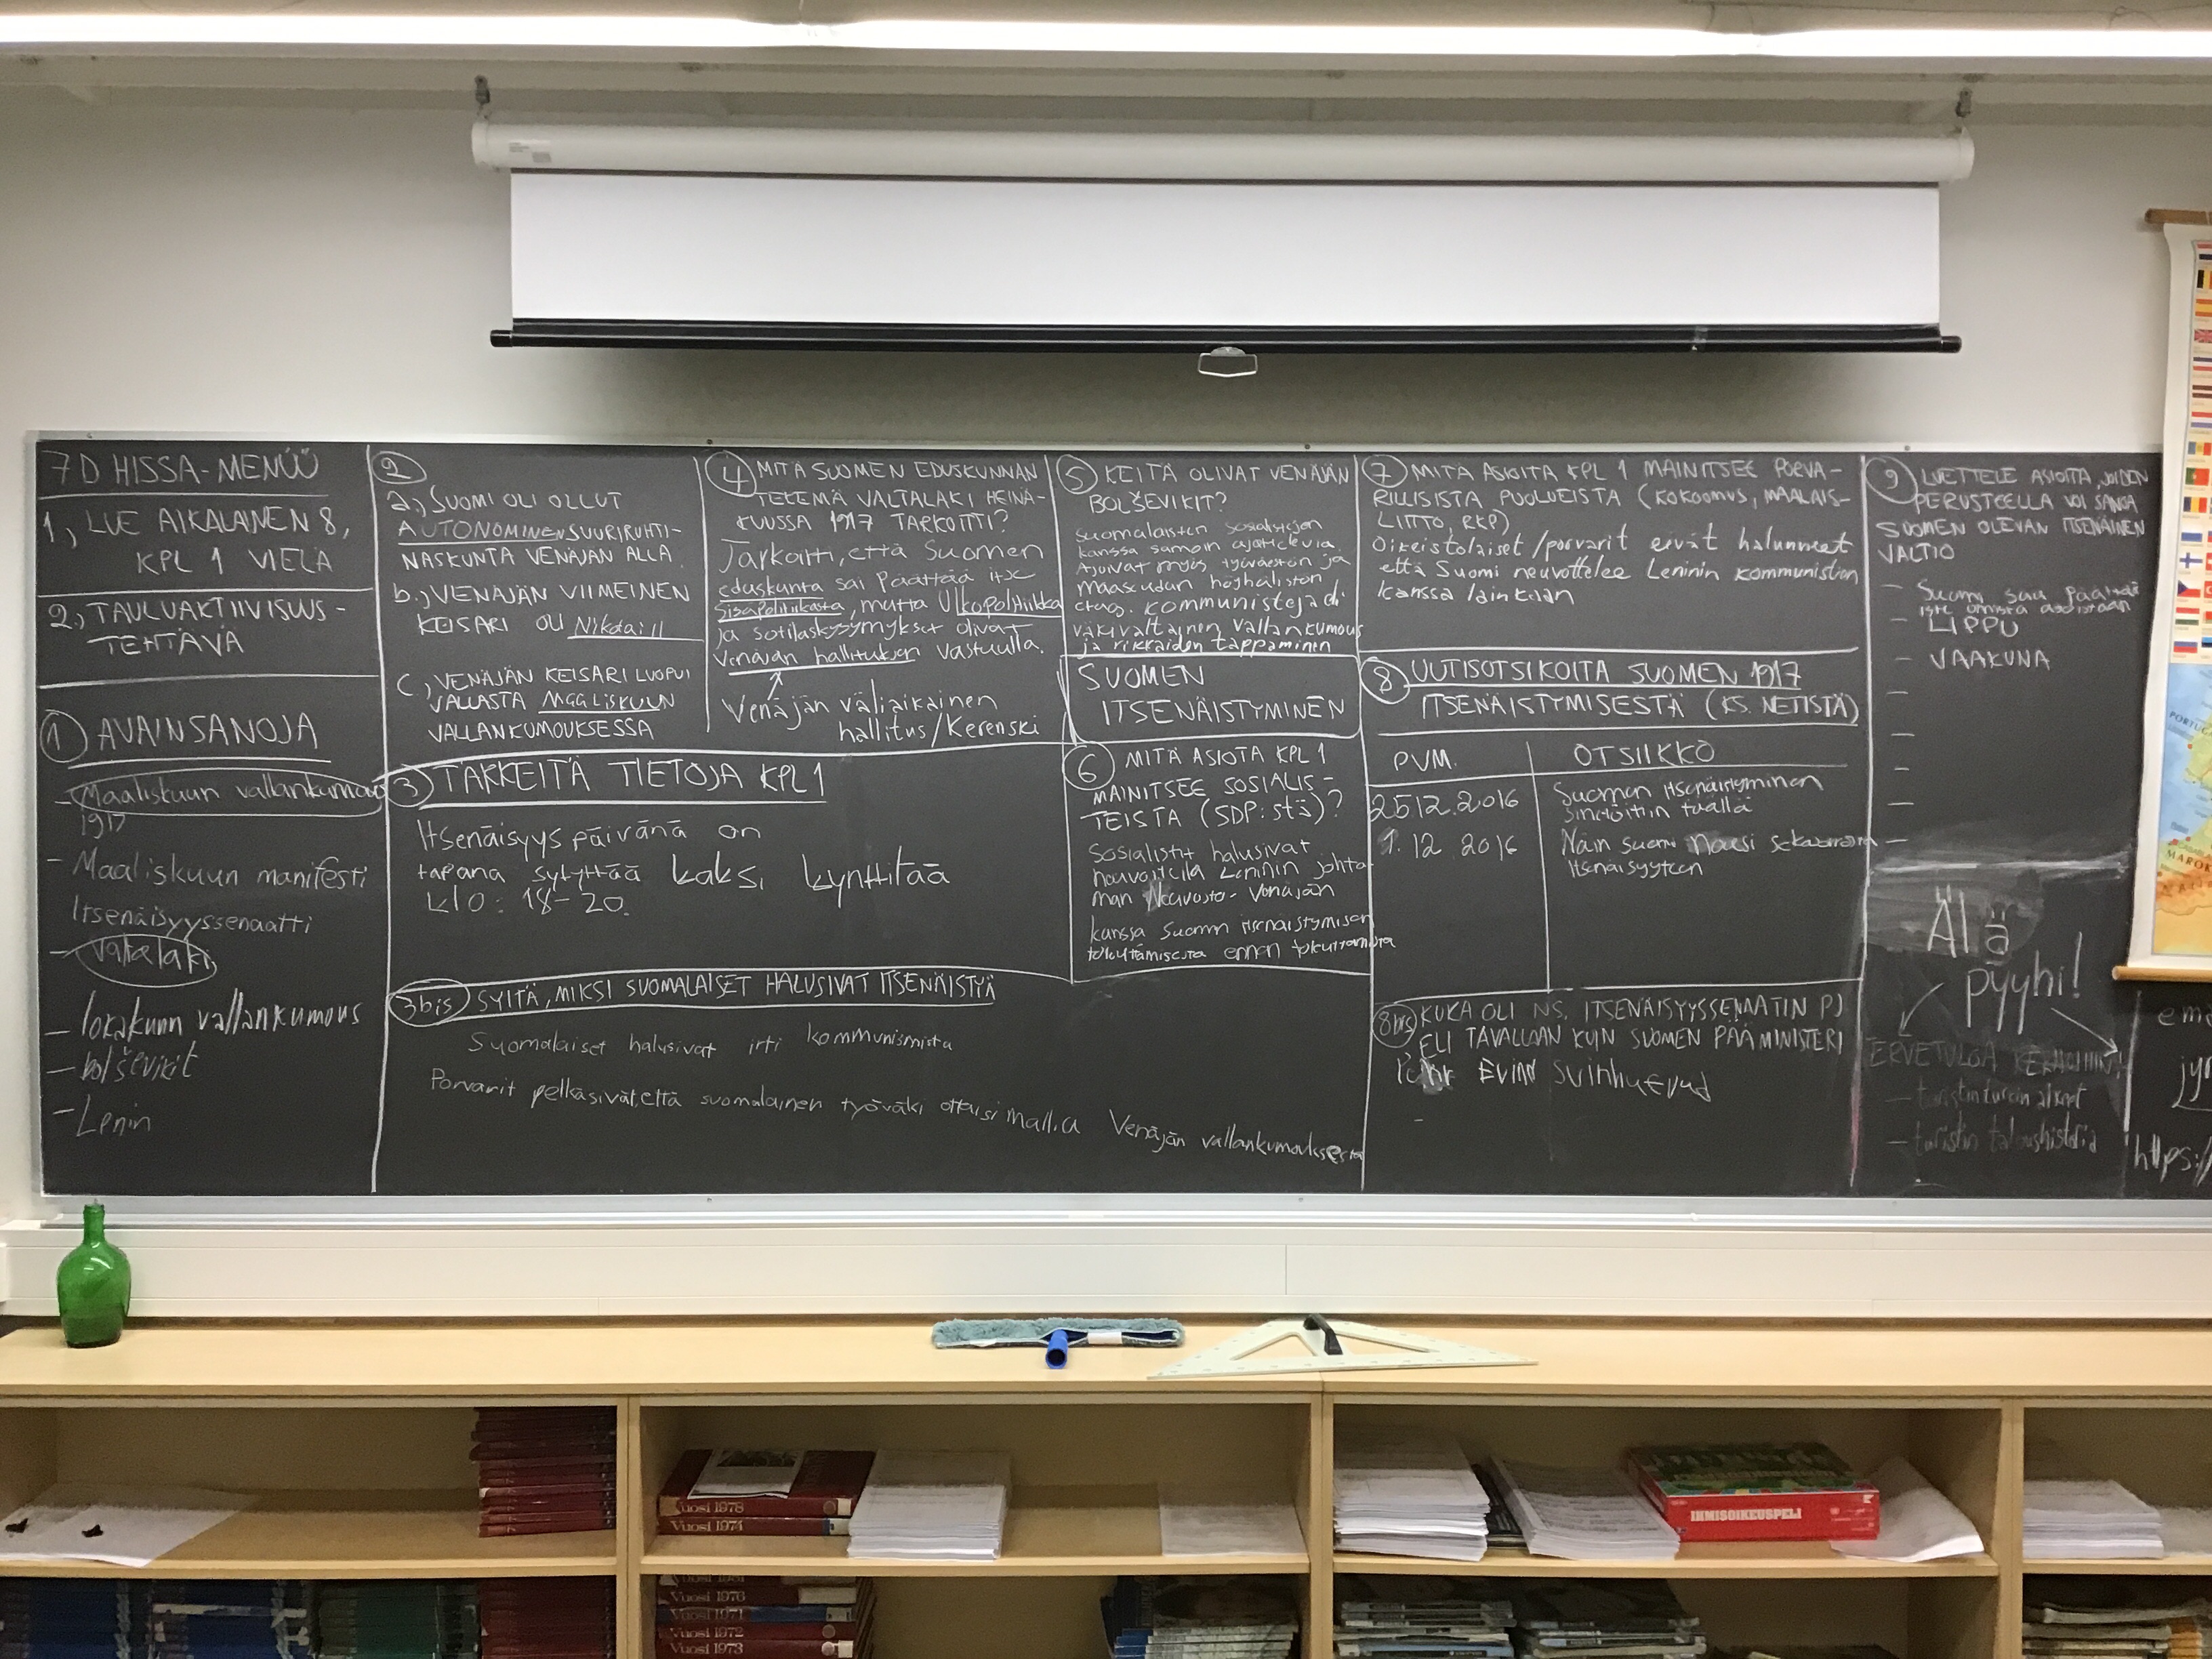 7D HISSA-MENÜÜ
1, LUE AIKALAINEN 8,
KPL 1 VIELÄ
2.) TAULUAKTIIVISUUS-
TEHTÄVÄ
1 AVAINSANOJA
- Maaliskuun vallankumous
1917
- Maaliskuun manifesti
Itsenäisyyssenaatti
- Valtalaki
- lokakuun vallankumous
- bolševikit
- Lenin
2
a.) SUOMI OLI OLLUT
AUTONOMINEN SUURIRUHTI-
NASKUNTA VENÄJÄN ALLA.
b.) VENÄJÄN VIIMEINEN
KEISARI OLI Nikolai II
c.) VENÄJÄN KEISARI LUOPUI
VALLASTA MAALISKUUN
VALLANKUMOUKSESSA
3 TÄRKEITÄ TIETOJA KPL 1
Itsenäisyys päivänä on
tapana sytyttää kaksi kynttilää
klo: 18-20.
3bis SYITÄ, MIKSI SUOMALAISET HALUSIVAT ITSENÄISTYÄ
Suomalaiset halusivat irti kommunismista
Porvarit pelkäsivät, että suomalainen työväki ottaisi mallia Venäjän vallankumouksesta
4 MITÄ SUOMEN EDUSKUNNAN
TEKEMÄ VALTALAKI HEINÄ-
KUUSSA 1917 TARKOITTI?
Tarkoitti, että Suomen
eduskunta sai päättää itse
sisäpolitiikasta, mutta Ulkopolitiikka
ja sotilaskysymykset olivat
Venäjän hallituksen vastuulla.
Venäjän väliaikainen
hallitus/Kerenski
5 KEITÄ OLIVAT VENÄJÄN
BOLŠEVIKIT?
Suomalaisten sosialistejen
kanssa samoin ajattelevia
Ajoivat myös työväestön ja
maaseudun köyhälistön
etuja. kommunisteja
väkivaltainen vallankumous
ja rikkaiden tappaminen
SUOMEN
ITSENÄISTYMINEN
6 MITÄ ASIOTA KPL 1
MAINITSEE SOSIALIS-
TEISTA (SDP:stä)?
Sosialistit halusivat
neuvotella Leninin johta-
man Neuvosto-Venäjän
kanssa Suomen itsenäistymisen
ennen
7 MITÄ ASIOITA KPL 1 MAINITSEE PORVA-
RILLISISTA PUOLUEISTA (KOKOOMUS, MAALAIS-
LIITTO, RKP)
Oikeistolaiset/porvarit eivät halunneet
että Suomi neuvottelee Leninin kommunistien
kanssa lainkaan
8 UUTISOTSIKOITA SUOMEN 1917
ITSENÄISTYMISESTÄ (KS. NETISTÄ)
PVM. OTSIKKO
25.12.2016 Suomen itsenäistyminen
sinetöitiin täällä
1.12.2016 Näin suomi nousi sekasorrosta
Itsenäisyyteen
8bis KUKA OLI NS. ITSENÄISYYSSENAATIN PJ
ELI TAVALLAAN KUIN SUOMEN PÄÄMINISTERI
Evind Svinhufvud
-
9 LUETTELE ASIOITA, JOIDEN
PERUSTEELLA VOI SANOA
SUOMEN OLEVAN ITSENÄINEN
VALTIO
- Suomi saa päättää
itse omista asioistaan
- LIPPU
- VAAKUNA
Älä
pyyhi!
TERVETULOA
- turistin
- turistin taloushistoria
https:/
PORTU
MAROK
Vuosi 1978
Vuosi 1974
Vuosi 1976
Vuosi 1971
Vuosi 1972
Vuosi 1973
IHMISOIKEUSPELI